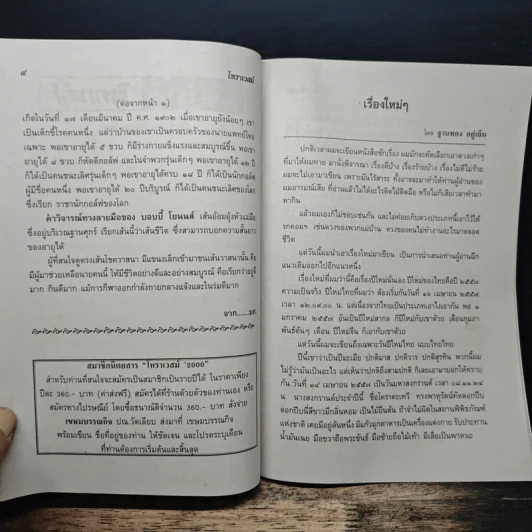 ๔
โหราเวสม์
(ต่อจากหน้า ๑)
เกิดในวันที่ ๑๗ เดือนมีนาคม ปี ค.ศ. ๑๙๐๒ เมื่อเขาอายุยังน้อยๆ เขา
เป็นเด็กขี้โรคคนหนึ่ง แต่ว่าบ้านของเขาเป็นครอบครัวของนายแพทย์โดย
เฉพาะ พอเขาอายุได้ ๕ ขวบ ก็มีร่างกายแข็งแรงและสมบูรณ์ขึ้น พอเขา
อายุได้ ๘ ขวบ ก็หัดตีกอล์ฟ และในจำพวกรุ่นเด็กๆ พอเขาอายุได้ ๑๒ ปี
ก็ได้เป็นคนชนะเลิศรุ่นเด็กๆ พอเขาอายุได้ครบ ๑๘ ปี ก็ได้เป็นนักกอล์ฟ
ผู้มีชื่อคนหนึ่ง พอเขาอายุได้ ๒๐ ปีบริบูรณ์ ก็ได้เป็นคนชนะเลิศของโลก
ซึ่งเรียก ราชานักกอล์ฟของโลก
คำวิจารณ์ทางลายมือของ บอบบี้ โยนนส์ เส้นอ้อมอุ้งหัวแม่มือ
ซึ่งอยู่บริเวณฐานศุกร์ เรียกเส้นนี้ว่าเส้นชีวิต ซึ่งสามารถบอกความสั้นยาว
ของอายุได้
ผู้ที่สนใจดูตรงเส้นโชควาสนา มีแขนงเล็กเข้ามาชนเส้นวาสนานั้น คือ
มีผู้มาช่วยเหลือนายคนนี้ ให้มีชีวิตอย่างดีและอย่างสมบูรณ์ คือเรียกว่าอยู่ดี
มาก กินดีมาก แม้การกีฬาออกกำลังกายกลางแจ้งและในร่มดีมาก
จาก
สมาชิกนิตยสาร "โหราเวสม์ '2000"
สำหรับท่านที่สนใจจะสมัครเป็นสมาชิกเป็นรายปีได้ ในราคาเพียง
ปีละ 360.- บาท (ค่าส่งฟรี) สมัครได้ที่ร้านด้วยตัวของท่านเอง หรือ
สมัครทางไปรษณีย์ โดยซื้อธนาณัติจำนวน 360.- บาท สั่งจ่าย
เขษมบรรณกิจ ปณ.วัดเลียบ ส่งมาที่ เขษมบรรณกิจ
พร้อมเขียน ชื่อที่อยู่ของท่าน ให้ชัดเจน และโปรดระบุเดือน
ที่ท่านต้องการเริ่มต้นและสิ้นสุด
เรื่องใหม่ๆ
โดย ฐานทอง อยู่เย็น
ปกติเวลาผมจะเขียนหนังสือซักเรื่อง ผมมักจะคัดเลือกเอาดวงเก่าๆ
ที่มาให้ผมทาย มานั่งพิจารณา เรื่องดีบ้าง เรื่องร้ายบ้าง เรื่องไม่ดีไม่ร้าย
ผมจะไม่เอามาเขียน เพราะมันไร้สาระ ทั้งอาจจะมาทำให้ท่านผู้อ่านของ
ผมอารมณ์เสีย ที่อ่านแล้วไม่ได้อะไรติดไม้ติดมือ หรือไม่ก็เสียเวลาทำมา
หากิน
แล้วผมเองก็ไม่ชอบเช่นกัน และไม่ค่อยเก็บดวงประเภทนี้เอาไว้ให้
รกคอมฯ เช่นดวงของพวกแม่บ้าน ดวงของคนไม่ทำงานอะไรมาตลอด
ชีวิต
แต่วันนี้ผมนำเอาเรื่องใหม่มาเขียน เป็นการนำเสนอท่านผู้อ่านฉีก
แนวเดิมออกไปอีกแนวหนึ่ง
เรื่องใหม่ที่ผมว่านี้คือเรื่องปีใหม่นั่นเอง ปีใหม่ของไทยคือปี ๒๕๕๗
ความเป็นจริง ปีใหม่ไทยที่ผมว่า ต้องเริ่มกันวันที่ ๑๖ เมษายน ๒๕๕๗
เวลา ๑๒.๐๙.๐๐ น. แต่เนื่องจากไทยเป็นประเภทเอาไงเอากัน พอ ๑
มกราคม ๒๕๕๗ อันเป็นปีใหม่สากล ก็ปีใหม่กับเขาด้วย เดือนกุมภา
พันธ์ต้นๆ เดือน ปีใหม่จีน ก็เอากับเขาด้วย
แต่วันนี้ผมจะเขียนถึงเฉพาะวันปีใหม่ไทย แบบไทยไทย
ปีนี้เขาว่าเป็นปีมะเมีย ปกติมาส ปกติวาร ปกติสุรทิน พวกนี้ผม
ไม่รู้ว่ามันเป็นอะไร แต่เห็นว่าปกติถึงสามปกติ ก็เลยเอามาบอกให้ทราบ
กัน วันที่ ๑๔ เมษายน ๒๕๕๗ เป็นวันมหาสงกรานต์ เวลา ๐๘.๑๑.๒๔
น. นางสงกรานต์ประจำปีนี้ ชื่อโคราคะเทวี ทรงพาหุรัดทัดดอกปีบ
ดอกปีบนี้สีขาวมีกลิ่นหอม เป็นไม้ยืนต้น ถ้าจำไม่ผิดในสถานพิพิธภัณฑ์
แห่งชาติ เคยมีอยู่ต้นหนึ่ง มีแก้วมุกดาหารเป็นเครื่องแต่งกาย รับประทาน
น้ำมันเนย มือขวาถือพระขันธ์ มือซ้ายถือไม้เท้า มีเสือเป็นพาหนะ